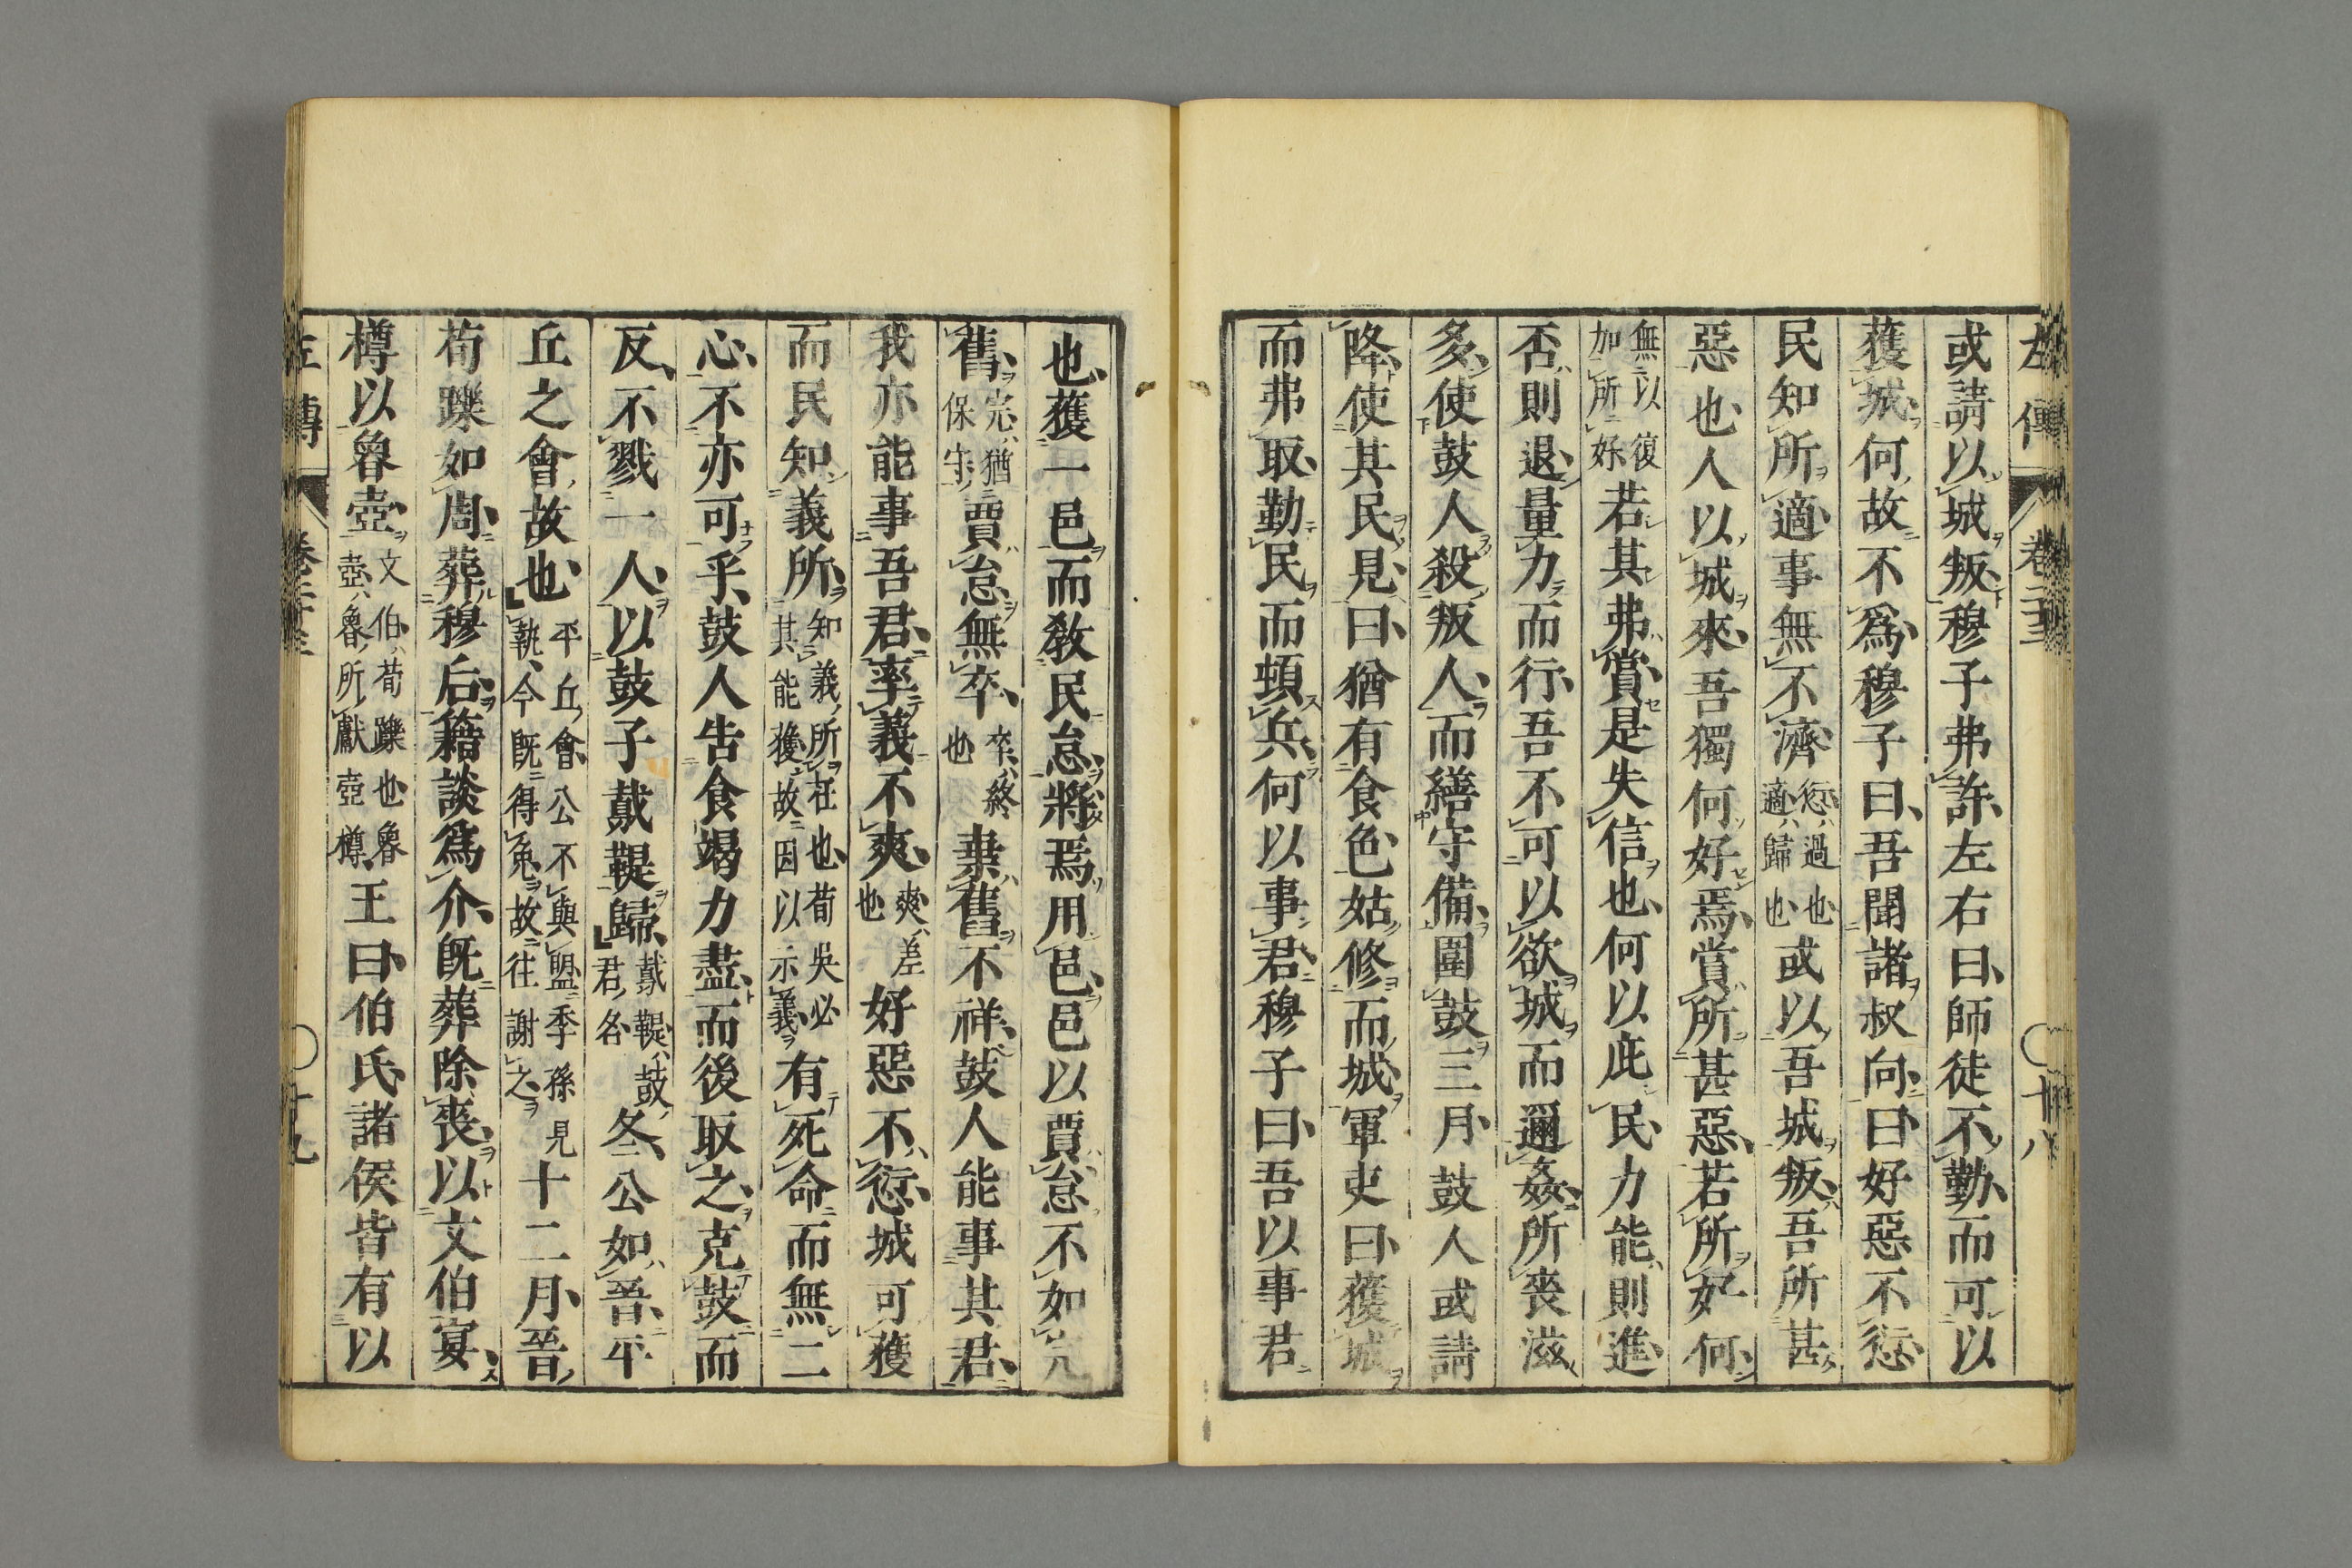 左傳 卷二十三 〇十八
或請以城叛穆子弗許左右曰師徒不勤而可以
獲城何故不爲穆子曰吾聞諸叔向曰好惡不愆
民知所適事無不濟愆過也適歸也或以吾城叛吾所甚
惡也人以城來吾獨何好焉賞所甚惡若所好何
無以復加所好若其弗賞是失信也何以庇民力能則進
否則退量力而行吾不可以欲城而邇姦所喪滋
多使鼓人殺叛人而繕守備圍鼓三月鼓人或請
降使其民見曰猶有食色姑修而城軍吏曰獲城
而弗取勤民而頓兵何以事君穆子曰吾以事君
也獲一邑而教民怠將焉用邑邑以賈怠不如完
舊完猶保守賈怠無卒卒終也棄舊不祥鼓人能事其君
我亦能事吾君率義不爽爽差也好惡不愆城可獲
而民知義所知義所在也荀吳必其能獲故因以示義有死命而無二
心不亦可乎鼓人告食竭力盡而後取之克鼓而
反不戮一人以鼓子䳒鞮歸䳒鞮鼓君名冬公如晉平
丘之會故也平丘會公不與盟季孫見執今既得免故往謝之十二月晉
荀躒如周葬穆后籍談爲介既葬除喪以文伯宴
樽以魯壺文伯荀躒也魯壺魯所獻壺樽王曰伯氏諸侯皆有以
左傳 卷二十三 〇十九